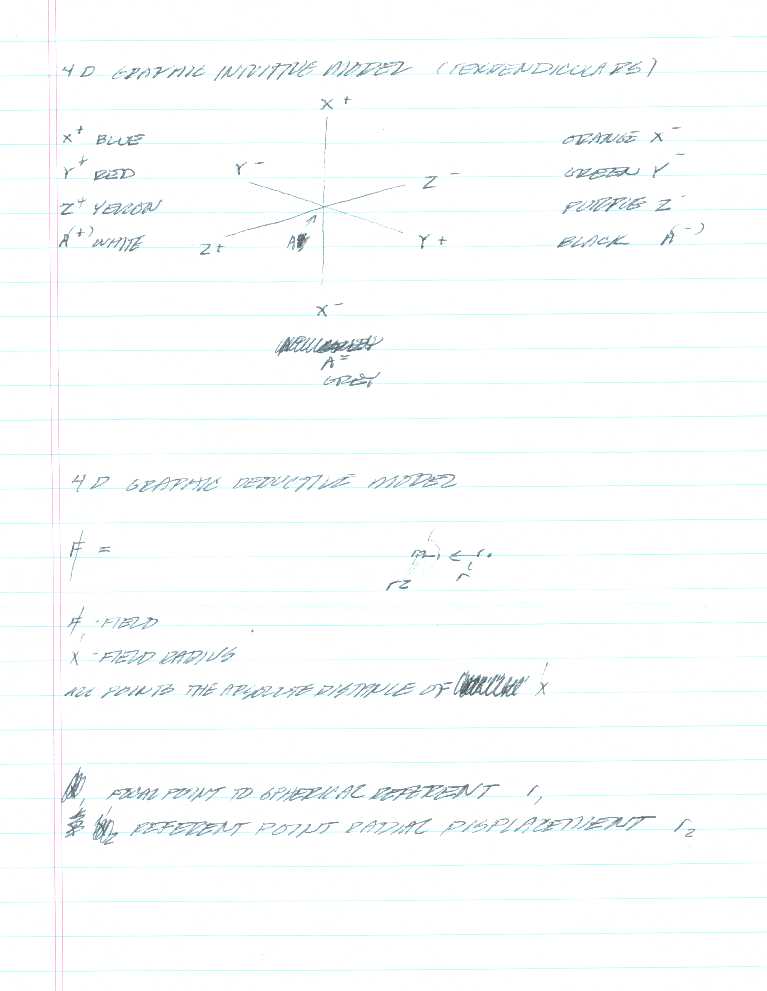 4 D GRAPHIC INTUITIVE MODEL (PERPENDICULARS)
X +
X + BLUE ORANGE X -
Y + RED Y - Z - GREEN Y -
Z + YELLOW PURPLE Z -
A (+) WHITE Z + A Y + BLACK A (-)
X -
A =
GREY
4 D GRAPHIC DEDUCTIVE MODEL
F =
r2 r
F - FIELD
X - FIELD RADIUS
ALL POINTS THE ABSOLUTE DISTANCE OF X
FOCAL POINT TO SPHERICAL REFERENT r1
REFERENT POINT RADIAL DISPLACEMENT r2